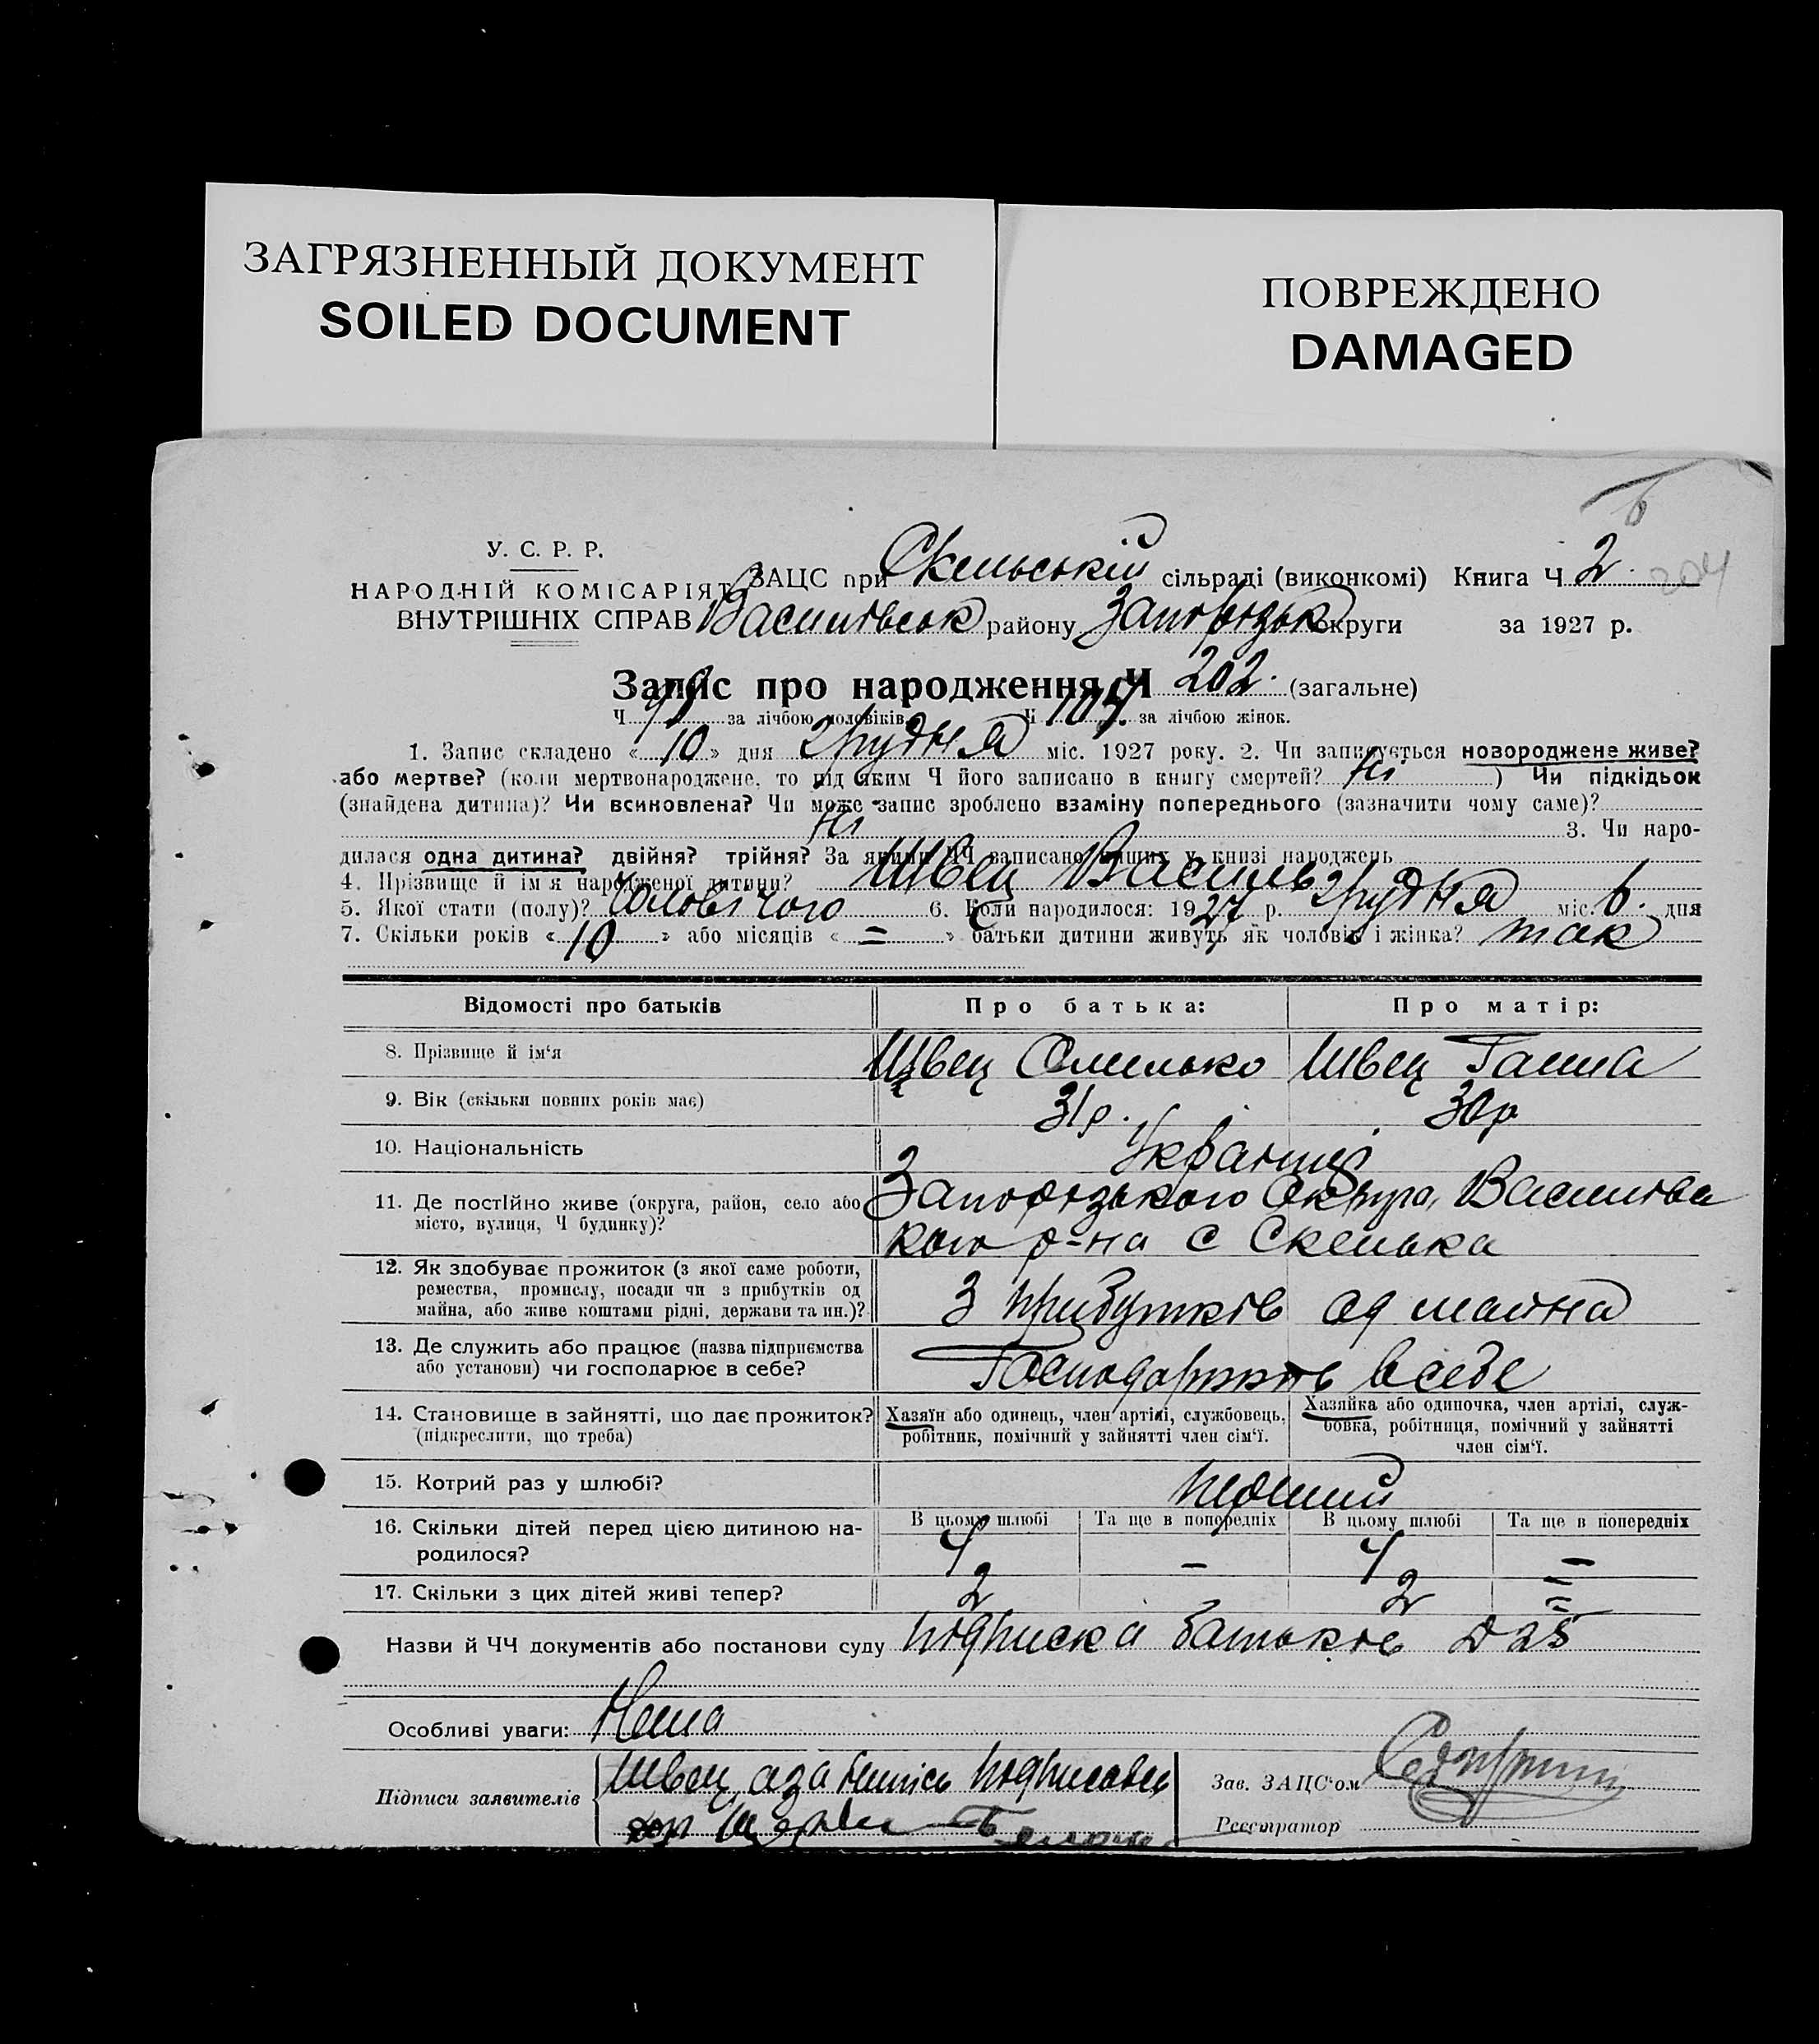 ЗАГРЯЗНЕННЫЙ ДОКУМЕНТ
SOILED DOCUMENT
ПОВРЕЖДЕНО
DAMAGED
У. С. Р. Р.
НАРОДНІЙ КОМІСАРІЯТ
ВНУТРІШНІХ СПРАВ
ЗАЦС при Скельській сільраді (виконкомі) Книга Ч 2. 204
Василівськ району Запорізьк округи за 1927 р.
Запис про народження Ч 202. (загальне)
Ч 98 за лічбою чоловіків. Ч 104 за лічбою жінок.
1. Запис складено « 10 » дня Грудня міс. 1927 року. 2. Чи записується новороджене живе?
або мертве? (коли мертвонароджене, то під яким Ч його записано в книгу смертей? Ні ) Чи підкідьок
(знайдена дитина)? Чи всиновлена? Чи може запис зроблено взаміну попереднього (зазначити чому саме)?
Ні 3. Чи наро-
дилася одна дитина? двійня? трійня? За якими ЧЧ записано інших у книзі народжень
4. Прізвище й ім'я народженої дитини? Швец Василь
5. Якої стати (полу)? Чоловічого 6. Коли народилося: 1927 р. Грудня міс. 6. дня
7. Скільки років « 10 » або місяців « = » батьки дитини живуть як чоловік і жінка? так
Відомості про батьків Про батька: Про матір:
8. Прізвище й ім'я Швец Омелько Швец Ганна
9. Вік (скільки повних років має) 31 р. 30 р
10. Національність Українці
11. Де постійно живе (округа, район, село або місто, вулиця, Ч будинку)?
Запорізького Округа, Василівс
кого р-на с Скелька
12. Як здобуває прожиток (з якої саме роботи,
ремества, промислу, посади чи з прибутків од
майна, або живе коштами рідні, держави та ин.)?
З прибутків од майна
13. Де служить або працює (назва підприємства
або установи) чи господарює в себе?
Господарюють в себе
14. Становище в зайнятті, що дає прожиток?
(підкреслити, що треба)
Хазяїн або одинець, член артілі, службовець,
робітник, помічний у зайнятті член сім'ї.
Хазяйка або одиночка, член артілі, служ-
бовка, робітниця, помічний у зайнятті
член сім'ї.
15. Котрий раз у шлюбі? перший
16. Скільки дітей перед цією дитиною на-
родилося?
В цьому шлюбі Та ще в попередніх В цьому шлюбі Та ще в попередніх
4 – 4 =
17. Скільки з цих дітей живі тепер? 2 2 =
Назви й ЧЧ документів або постанови суду подписка батьків
Особливі уваги: Нема
Підписи заявителів Швец
Зав. ЗАЦС'ом
Реєстратор